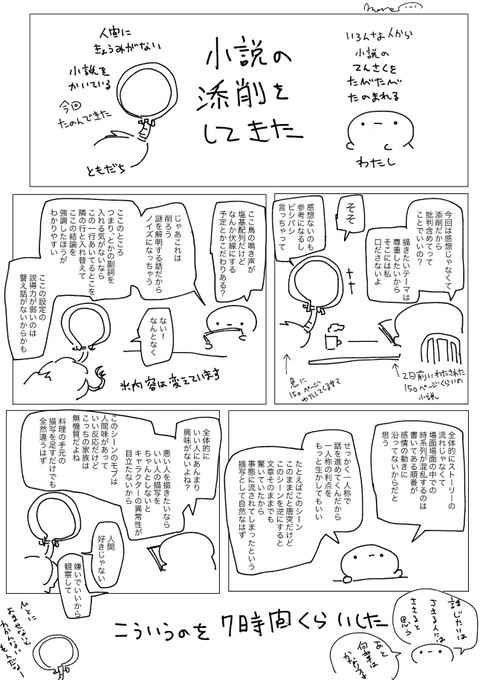 人間に
きょうみがない
小説を
かいている
今回
たのんできた
ともだち
小説の
添削を
してきた
いろんな人から
小説の
てんさくを
たびたび
たのまれる
わたし
今回は感想じゃなくて
添削だから
批判含めてって
ことでいいの?
描きたいテーマは
尊重したいから
そこには私
口ださないよ
そそ
感想ないのも
参考になるし
ビシバシ
言っちゃって
2日前にわたされた
150ページくらいの
小説
急に
150ページ
わたしてくる
ここ鳥の鳴き声が
塩基配列だけど
なんか伏線にする
予定とかこだわりある?
ない!
なんとなく
じゃあこれは
削ろう
謎を解明する話だから
ノイズになっちゃう
ここのところ
つまり、とかの副詞を
入れる気がないなら
この一行あいてるとこを
隣の行と入れ替えて
ここの結論を
強調したほうが
わかりやすい
ここの設定の
説得力が弱いのは
譬え話がないからかも
※内容は変えています
全体的にストーリーの
流れじゃなくて
場面場面の中での
時系列が混乱するのは
書いてある順番が
感情の動きに
沿ってないからだと
思う
せっかく一人称で
話を進めてくんだから
一人称の利点を
もっと生かしてもいい
たとえばこのシーン
このままだと唐突だけど
このシーンを逆にすると
文章そのままでも
驚いていたから
事態に流されてしまったという
描写として自然なはず
全体的に
いい人にあんまり
興味がないよね?
悪い人を描きたいなら
いい人の描写を
ちゃんとしないと
キャラクターの異常性が
目立たないから
このシーンのモブは
人間味があって
いい反応だけど
こっちの家族は
無機質だよね
料理の手元の
描写を足すだけでも
全然違うはず
人間
好きじゃない
嫌いでいいから
観察して
こういうのを7時間くらいした
ささる人には
ささると
思う
あと